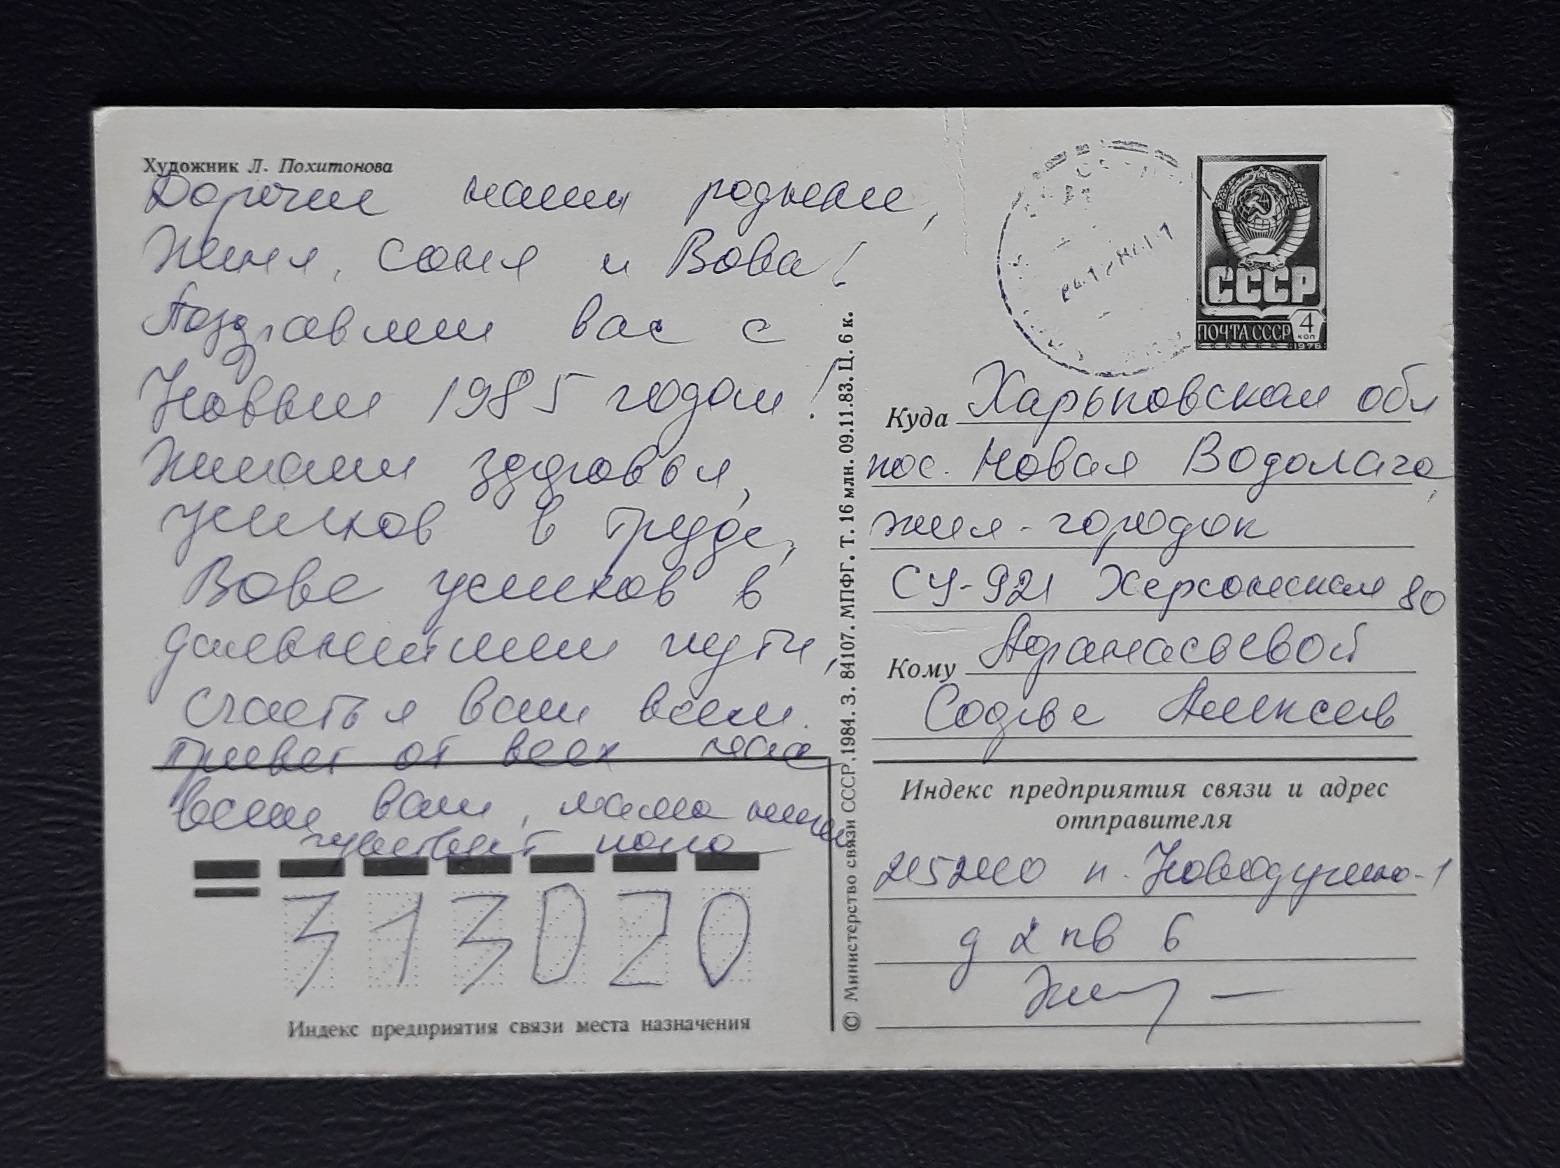 Художник Л. Похитонова
Дорогие наши родные,
Женя, Соня и Вова!
Поздравляем вас с
Новым 1985 годом!
Желаем здоровья,
успехов в труде,
Вове успехов в
дальнейшем пути,
счастья вам всем.
Привет от всех нас
всем вам, мама
чувствует
313020
Индекс предприятия связи места назначения
© Министерство связи СССР. 1984. З. 84107. МПФГ. Т. 16 млн. 09.11.83. Ц. 6 к.
СССР
ПОЧТА СССР 4 КОП
1976
Куда Харьковская обл
пос. Новая Водолага,
жил-городок
СУ-921 Херсонская 80
Кому Афанасьевой
Софье Алексеев
Индекс предприятия связи и адрес
отправителя
п.
д 2 кв 6